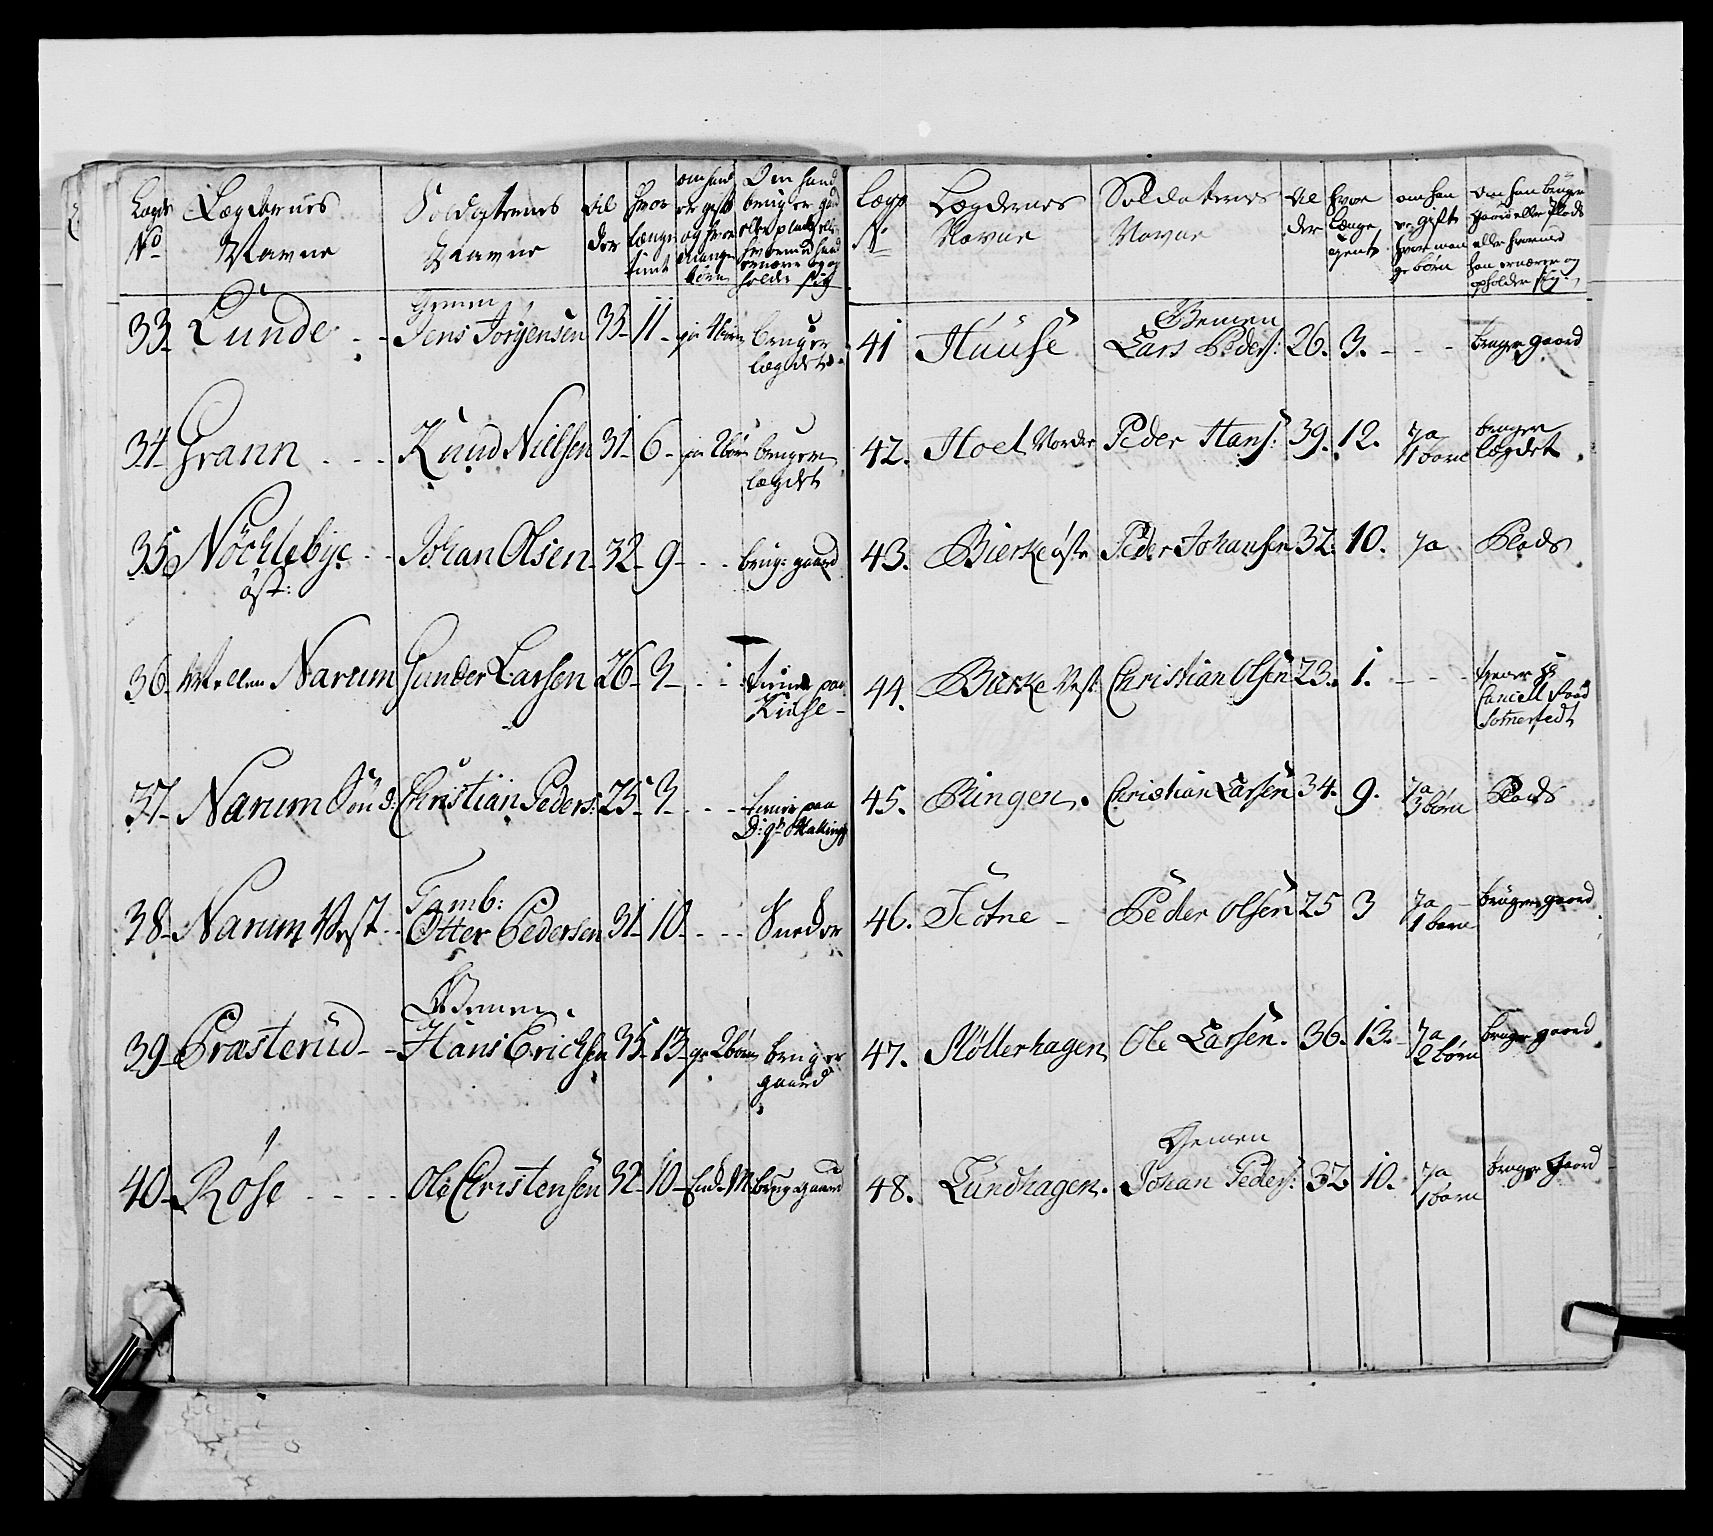 Lægds No | Lægdernes Navne | Soldaternes Navne | Alder | hvor længe tient | om hand er gift og hvor mange børn | Om hand bruger gaard eller plads eller hvormed hand ernærer og opholder sig
33 Lunde - - Jens Jörgensen 33 - 11 - ja 4 børn bruger lægdet
34 Grann - - - Knud Nielsen 31 - 6 - ja 2 børn bruger lægdet
35 Nöchlebye öst: - - Johan Olsen 32 - 9 - - - brug: gaard
36 Mellem Narum Gunder Larsen 26 - 3 - - - tiener paa
37 Narum Sönd: Christian Peders: 25 - 3 - - - tiener paa
38 Narum Vest - - Tamb: Otter Pedersen 31 - 10 - - - Snedker
39 Præsterud - - Hans Erichsen 35 - 13 - ja 2 børn bruger gaard
40 Röse - - - - Ole Christensen 32 - 10 - brug: gaard
Lægds No | Lægdernes Navne | Soldaternes Navne | Alder | hvor længe tient | om han er gift hvor mange børn | om han bruger gaard eller Plads eller hvormed han ernærer og opholder sig
41 Hause Lars Peders: 26. 3. - - - bruger gaard
42. Hoel Nordre Peder Hans: 39. 12. Ja 1 barn bruger lægdet
43. Bierke östr Peder Johansen 32. 10. Ja Plads
44. Bierke Vest Christian Olsen 23. 1. - - - tiener
45. Ringen. Christian Larsen 34. 9. Ja 3 børn Plads
46. Tötne - Peder Olsen 25 3 Ja 1 barn bruger gaard
47. Möllerhagen Ole Larsen. 36. 13. Ja 2 børn bruger gaard
48. Lundhagen. Johan Peders: 32 10. Ja 1 barn bruger gaard